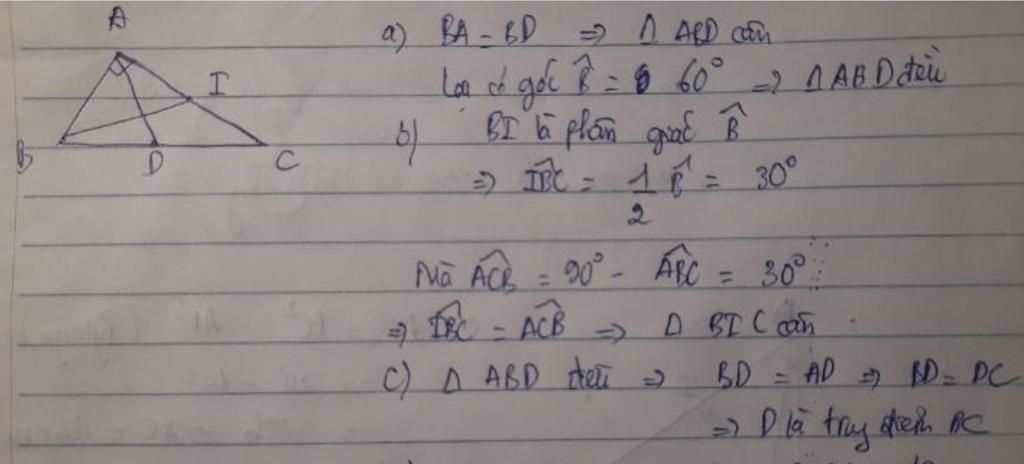 A
I
B
D
C
a) BA = BD => Δ ABD cân
Lại có góc B̂ = 60° => Δ ABD đều
b) BI là phân giác B̂
=> IBC^ = 1/2 B̂ = 30°
Mà ACB^ = 90° - ABC^ = 30°
=> IBC^ = ACB^ => Δ BIC cân
c) Δ ABD đều => BD = AD => BD = DC
=> D là trung điểm BC